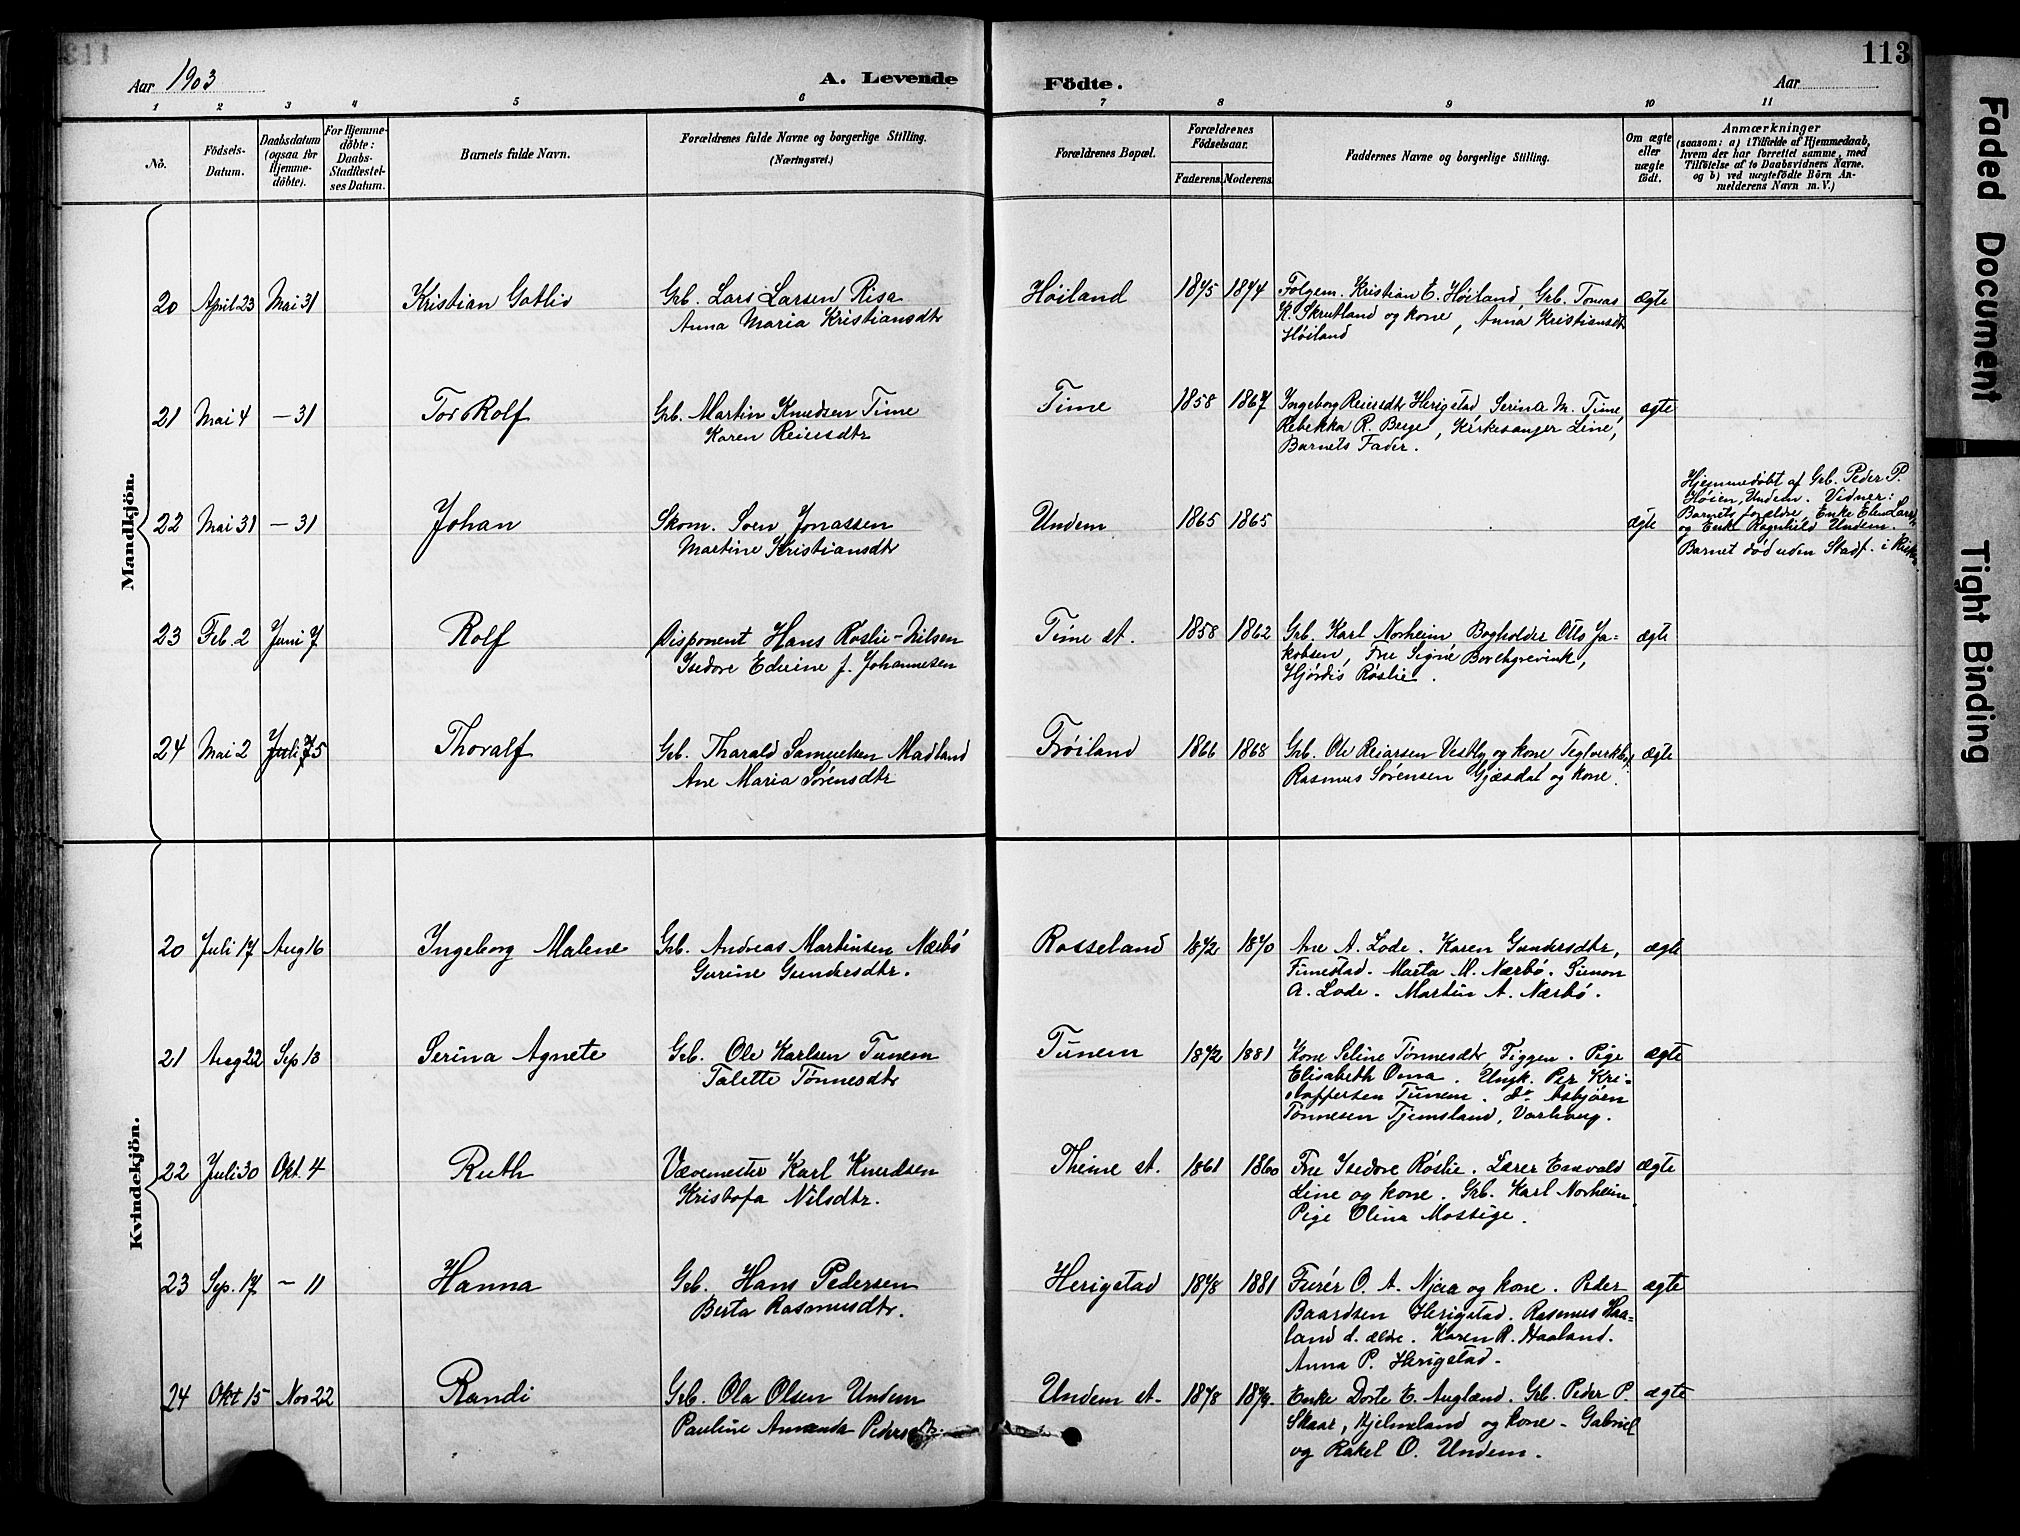 113
Aar 1903
A. Levende Födte.
Aar
1 2 3 4 5 6 7 8 9 10 11
No.
Födsels-Datum.
Daabsdatum (ogsaa for Hjemme-döbte).
For Hjemme-döbte: Daabs-Stadfæstel-ses Datum.
Barnets fulde Navn.
Forældrenes fulde Navne og borgerlige Stilling.
(Næringsvei.)
Forældrenes Bopæl.
Forældrenes Födselsaar.
Faderens. Moderens.
Faddernes Navne og borgerlige Stilling.
Om ægte eller uægte født.
Anmærkninger
(saasom: a) i Tilfælde af Hjemmedaab,
hvem der har forrettet samme, med
Tilföielse af to Daabsvidners Navne.
og b) ved uægtefödte Börn An-
melderens Navn m. V.)
Mandkjön.
20 April 23 Mai 31 Kristian Gotlid Grb. Lars Larsen Risa Høiland 1875 1874 Folgem. Kristian E. Høiland, Grb. Tomas ægte
Anna Maria Kristiansdtr K. Skrutland og kone, Anna Kristiansdt
Høiland
21 Mai 4 – 31 Tor Rolf Grb. Martin Knudsen Time Time 1858 1867 Ingeborg Reiersdtr Herigstad Serina M. Time, ægte
Karen Reiersdtr Rebekka R. Berge, Kirkesanger Line,
Barnets Fader.
22 Mai 31 – 31 Johan Skom. Soen Jonassen Undem 1865 1865 ægte
Martine Kristiansdtr
Hjemmedøbt af Grb. Peder P.
Høien, Undem. Vidner:
Barnets forældre, Enke Elen Lars
og Enke Ragnhild Undem.
Barnet død uden Stadf. i Kirken.
23 Feb. 2 Juni 7 Rolf Disponent Hans Røslie-Nilsen Time st. 1858 1862 Grb. Karl Norheim Bogholder Otto Ja- ægte
Isedore Edvine f. Johannesen kobsen, Frue Signe Borchgrevink,
Hjördis Røslie.
24 Mai 2 Juli 5 Thoralf Grb. Tharald Samuelsen Madland Frøiland 1866 1868 Grb. Ole Reiarsen Vestly og kone Teglverksb. ægte
Ane Maria Sørensdtr Rasmus Sørensen Gjæsdal og kone.
Kvindekjön.
20 Juli 17 Aug 16 Ingeborg Malene Grb. Andreas Martinsen Nærbø Rosseland 1872 1870 Ane A. Lode. Karen Gundersdtr, ægte
Gurine Gundersdtr. Fimestad. Marta M. Nærbø. Simon
A. Lode. Martin A. Nærbø.
21 Aug 22 Sep 13 Serina Agnete Grb. Ole Karlsen Tunem Tunem 1872 1881 Kone Seline Tønnesdtr Figgen. Pige ægte
Talette Tønnesdtr Elisabeth Oma. Ungk. Per Kri-
stoffersen Tunem. do Asbjørn
Tønnesen Tjemsland, Varhaug.
22 Juli 30 Okt. 4 Ruth Vævemester Karl Knudsen Thime st. 1861 1860 Frue Isedore Røslie. Lærer Enevald ægte
Kristofa Nilsdtr. Line og kone. Grb. Karl Norheim.
Pige Olina Mostige.
23 Sep. 17 – 11 Hanna Grb. Hans Pedersen Herigstad 1878 1881 Furér O. A. Njaa og kone. Peder ægte
Berta Rasmusdtr. Baardsen Herigstad. Rasmus Haa-
land d. ældre. Karen R. Haaland.
Anna P. Herigstad.
24 Okt 15 Nov 22 Randi Grb. Ola Olsen Undem Undem st. 1878 1879. Enke Dorte E. Augland. Grb. Peder P. ægte
Pauline Amanda Skaar, Hjelmeland og kone. Gabriel
og Rakel O. Undem.
Faded Document
Tight Binding